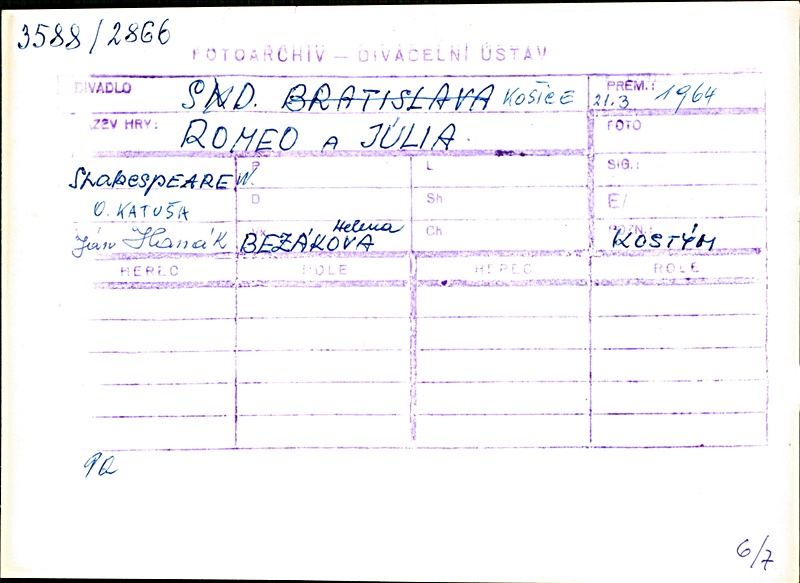 3588/2866
FOTOARCHIV — DIVADELNÍ ÚSTAV
DIVADLO SND. BRATISLAVA KOŠICE PREM.: 21.3 1964
ZEV HRY: ROMEO A JÚLIA. FOTO
ShakespEARE W. P L SIG.:
O. KATUŠA D Sh E/
Ján Hanák Vk BEZÁKOVA Helena Ch POZN.: KOSTÝM
HEREC ROLE HEREC ROLE
6/7